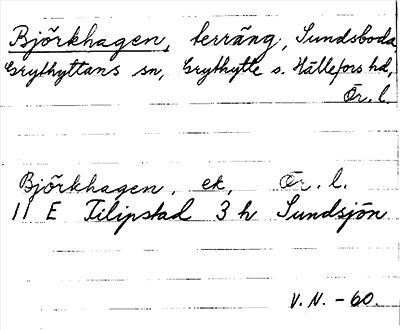 Björkhagen, terräng, Sundsboda,
Grythyttans sn, Grythytte o. Hällefors hd,
Ör. l.
Björkhagen, ek, Ör. l.
11 E Filipstad 3 h Sundsjön
V. N. - 60.